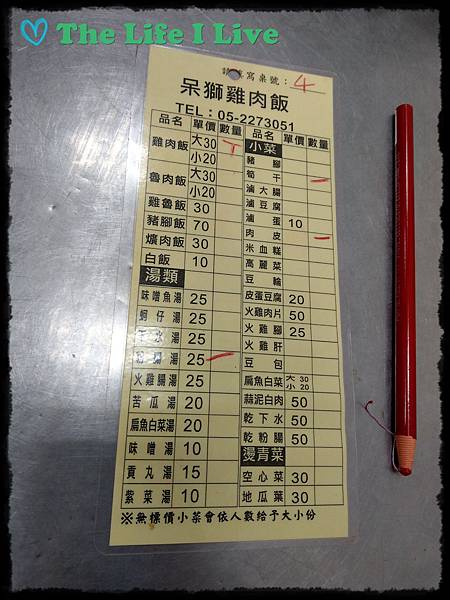 The Life I Live
請填寫桌號：4
呆獅雞肉飯
TEL：05-2273051
品名 單價 數量 品名 單價 數量
雞肉飯 大30 小菜
小20 豬腳
魯肉飯 大30 筍干
小20 滷大腸
雞魯飯 30 滷豆腐
豬腳飯 70 滷蛋 10
爌肉飯 30 肉皮
白飯 10 米血糕
湯類 高麗菜
味噌魚湯 25 豆輪
蚵仔湯 25 皮蛋豆腐 20
下水湯 25 火雞肉片 50
粉腸湯 25 火雞腳 25
火雞腸湯 25 火雞肝
苦瓜湯 20 豆包
扁魚白菜湯 20 扁魚白菜 大30 小20
味噌湯 10 蒜泥白肉 50
貢丸湯 15 乾下水 50
紫菜湯 10 乾粉腸 50
燙青菜
空心菜 30
地瓜葉 30
※無標價小菜會依人數給予大小份